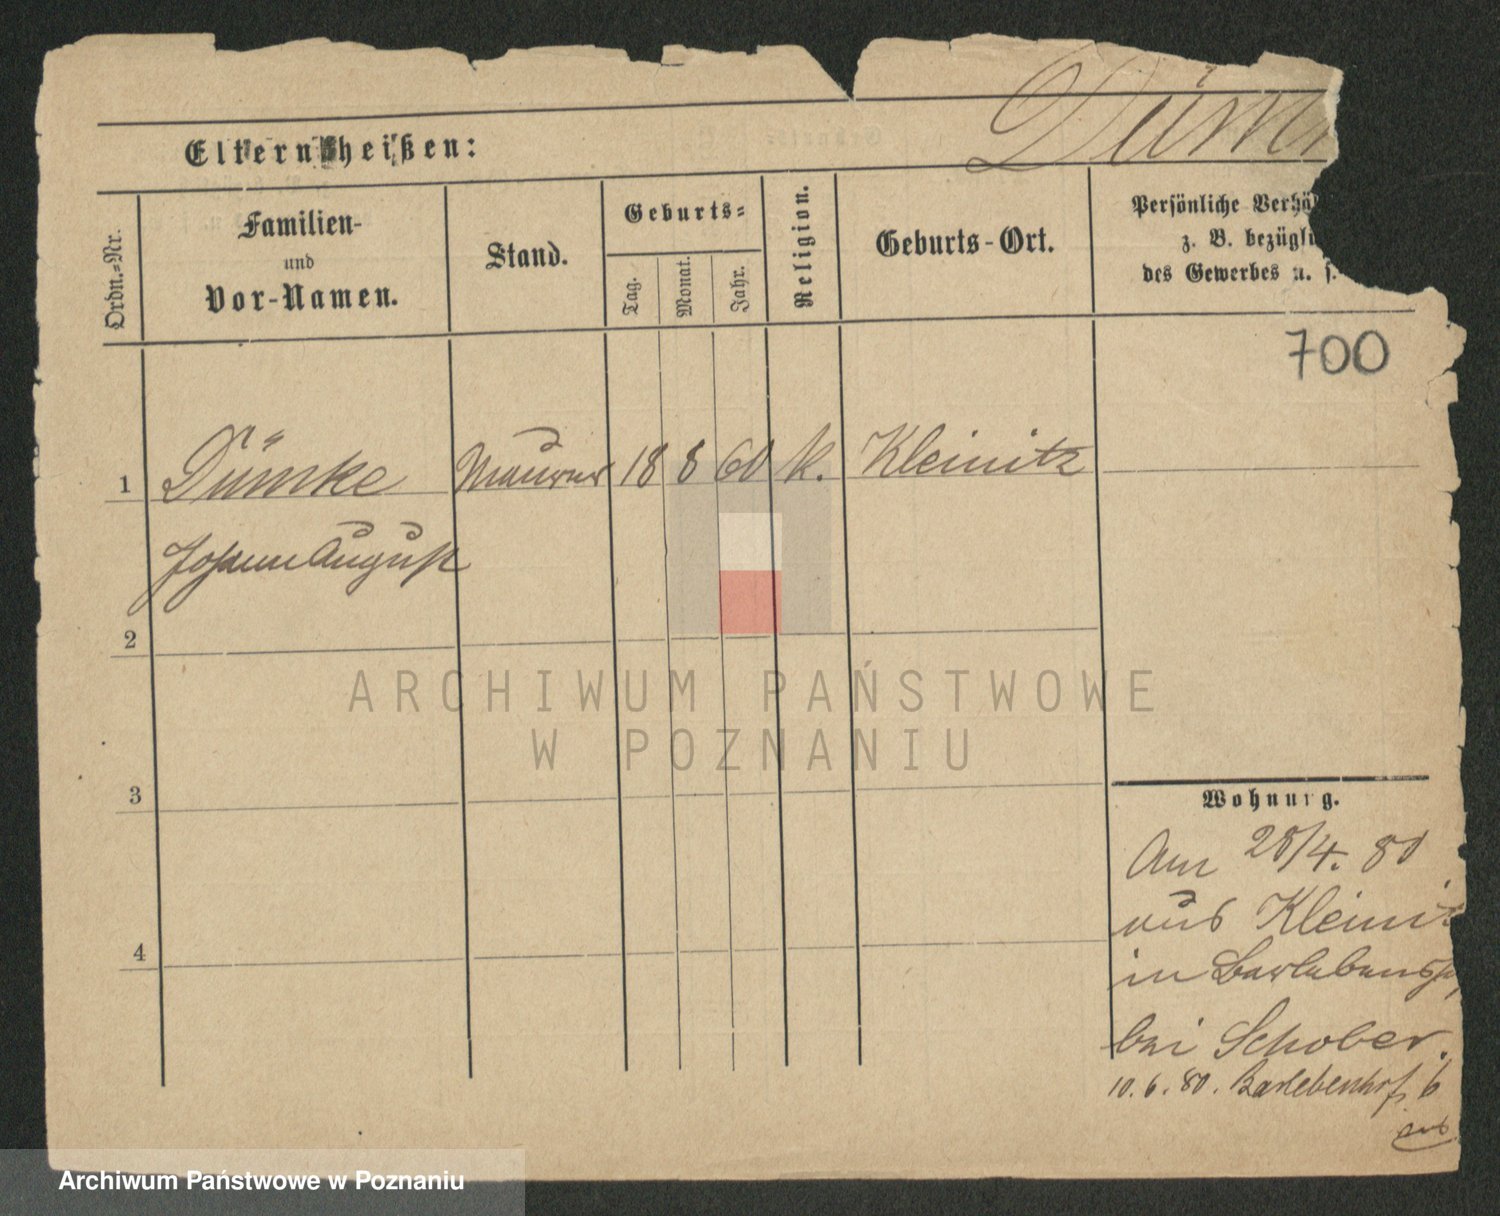 Düm
Eltern heißen:
Ordn.=Nr.
Familien-
und
Vor-Namen.
Stand.
Geburts=
Tag.
Monat.
Jahr.
Religion.
Geburts-Ort.
Persönliche Verhä
z. B. bezügli
des Gewerbes u. s.
700
1 Dümke Maurer 18 8 60 k. Kleinitz
Johann August
2
ARCHIWUM PAŃSTWOWE
W POZNANIU
3
Wohnung.
Am 28/4. 80
aus Kleinit
in
4
bei Schober.
10. 6. 80. Barlebenshof 6
Archiwum Państwowe w Poznaniu